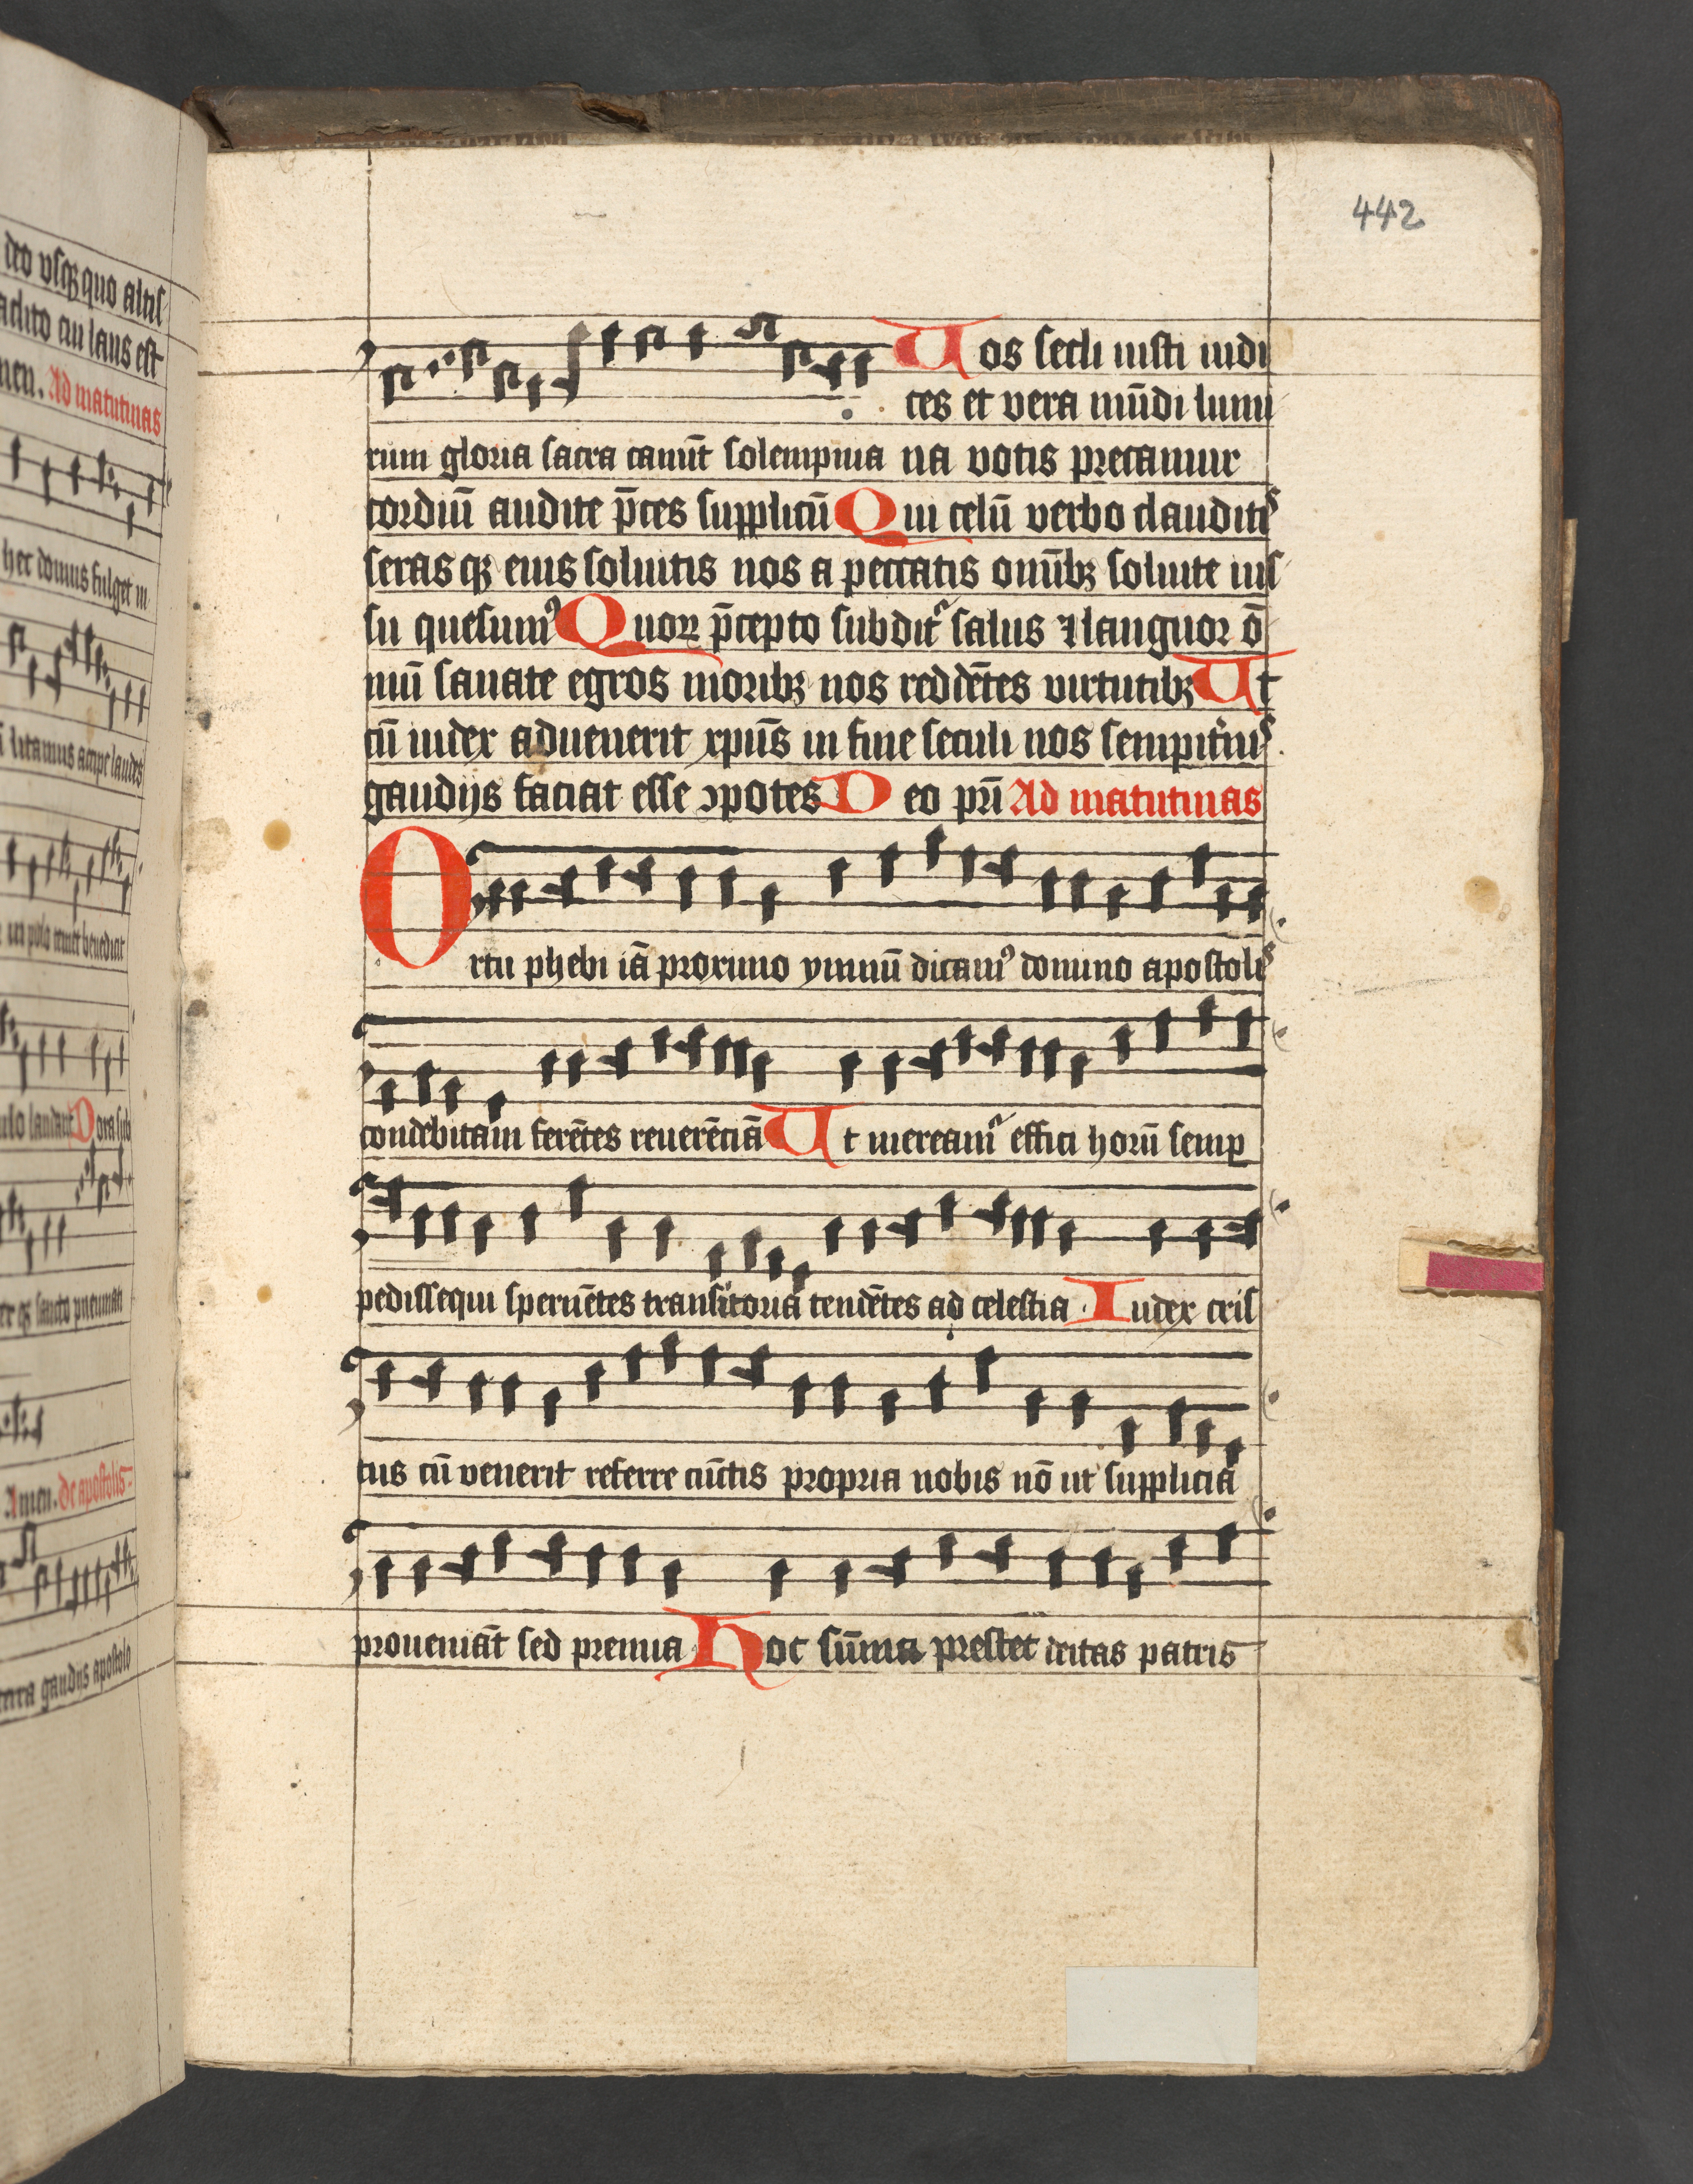 deo vsqꝫ quo altis
laus est
men. Ad matutinas
hec domus fulget in
litamus accipe laudes
benedicat
laudant Dora sub
sancto pneumati
Amen. de apostolis
gaudijs apostolo
442
Uos secli iusti iudi
ces et vera mūdi lumi
rum gloria sacra canūt solempnia na votis precamur
cordiū audite p̄ces supplicū Qui celū verbo clauditꝭ
seras qꝫ eius soluitis nos a peccatis omībꝫ soluite ius
su quesumꝰ Quoꝝ p̄cepto subditᷣ salus ⁊ languor ō
niū sanate egros moribꝫ nos reddētes virtutibꝫ Ut
cū iudex aduenerit xpūs in fine seculi nos sempit̾nꝭ
gaudijs faciat esse ↄpotes Deo pr̄i Ad matutinas
Ortu phebi iā proximo ymnū dicamꝰ domino apostolꝭ
condebitam ferētes reuerēciā Ut mereamᷣ effici horū semꝑ
pedissequi spernētes transitoria tendētes ad celestia Iudex cris
tus cū venerit referre cūctis propria nobis nō ut supplicia
proueniāt sed premia Hoc sūma prestet deitas patris